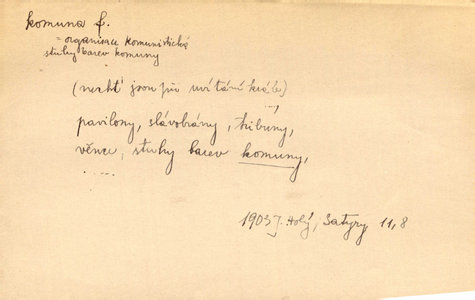 komuna f.
= organisace komunistická
stuhy barev komuny
(nechť jsou při uvítání krále)
...,
pavilony, slávobrány, tribuny,
věnce, stuhy barev komuny,
.....
1903 J. Holý, Satyry 11,8